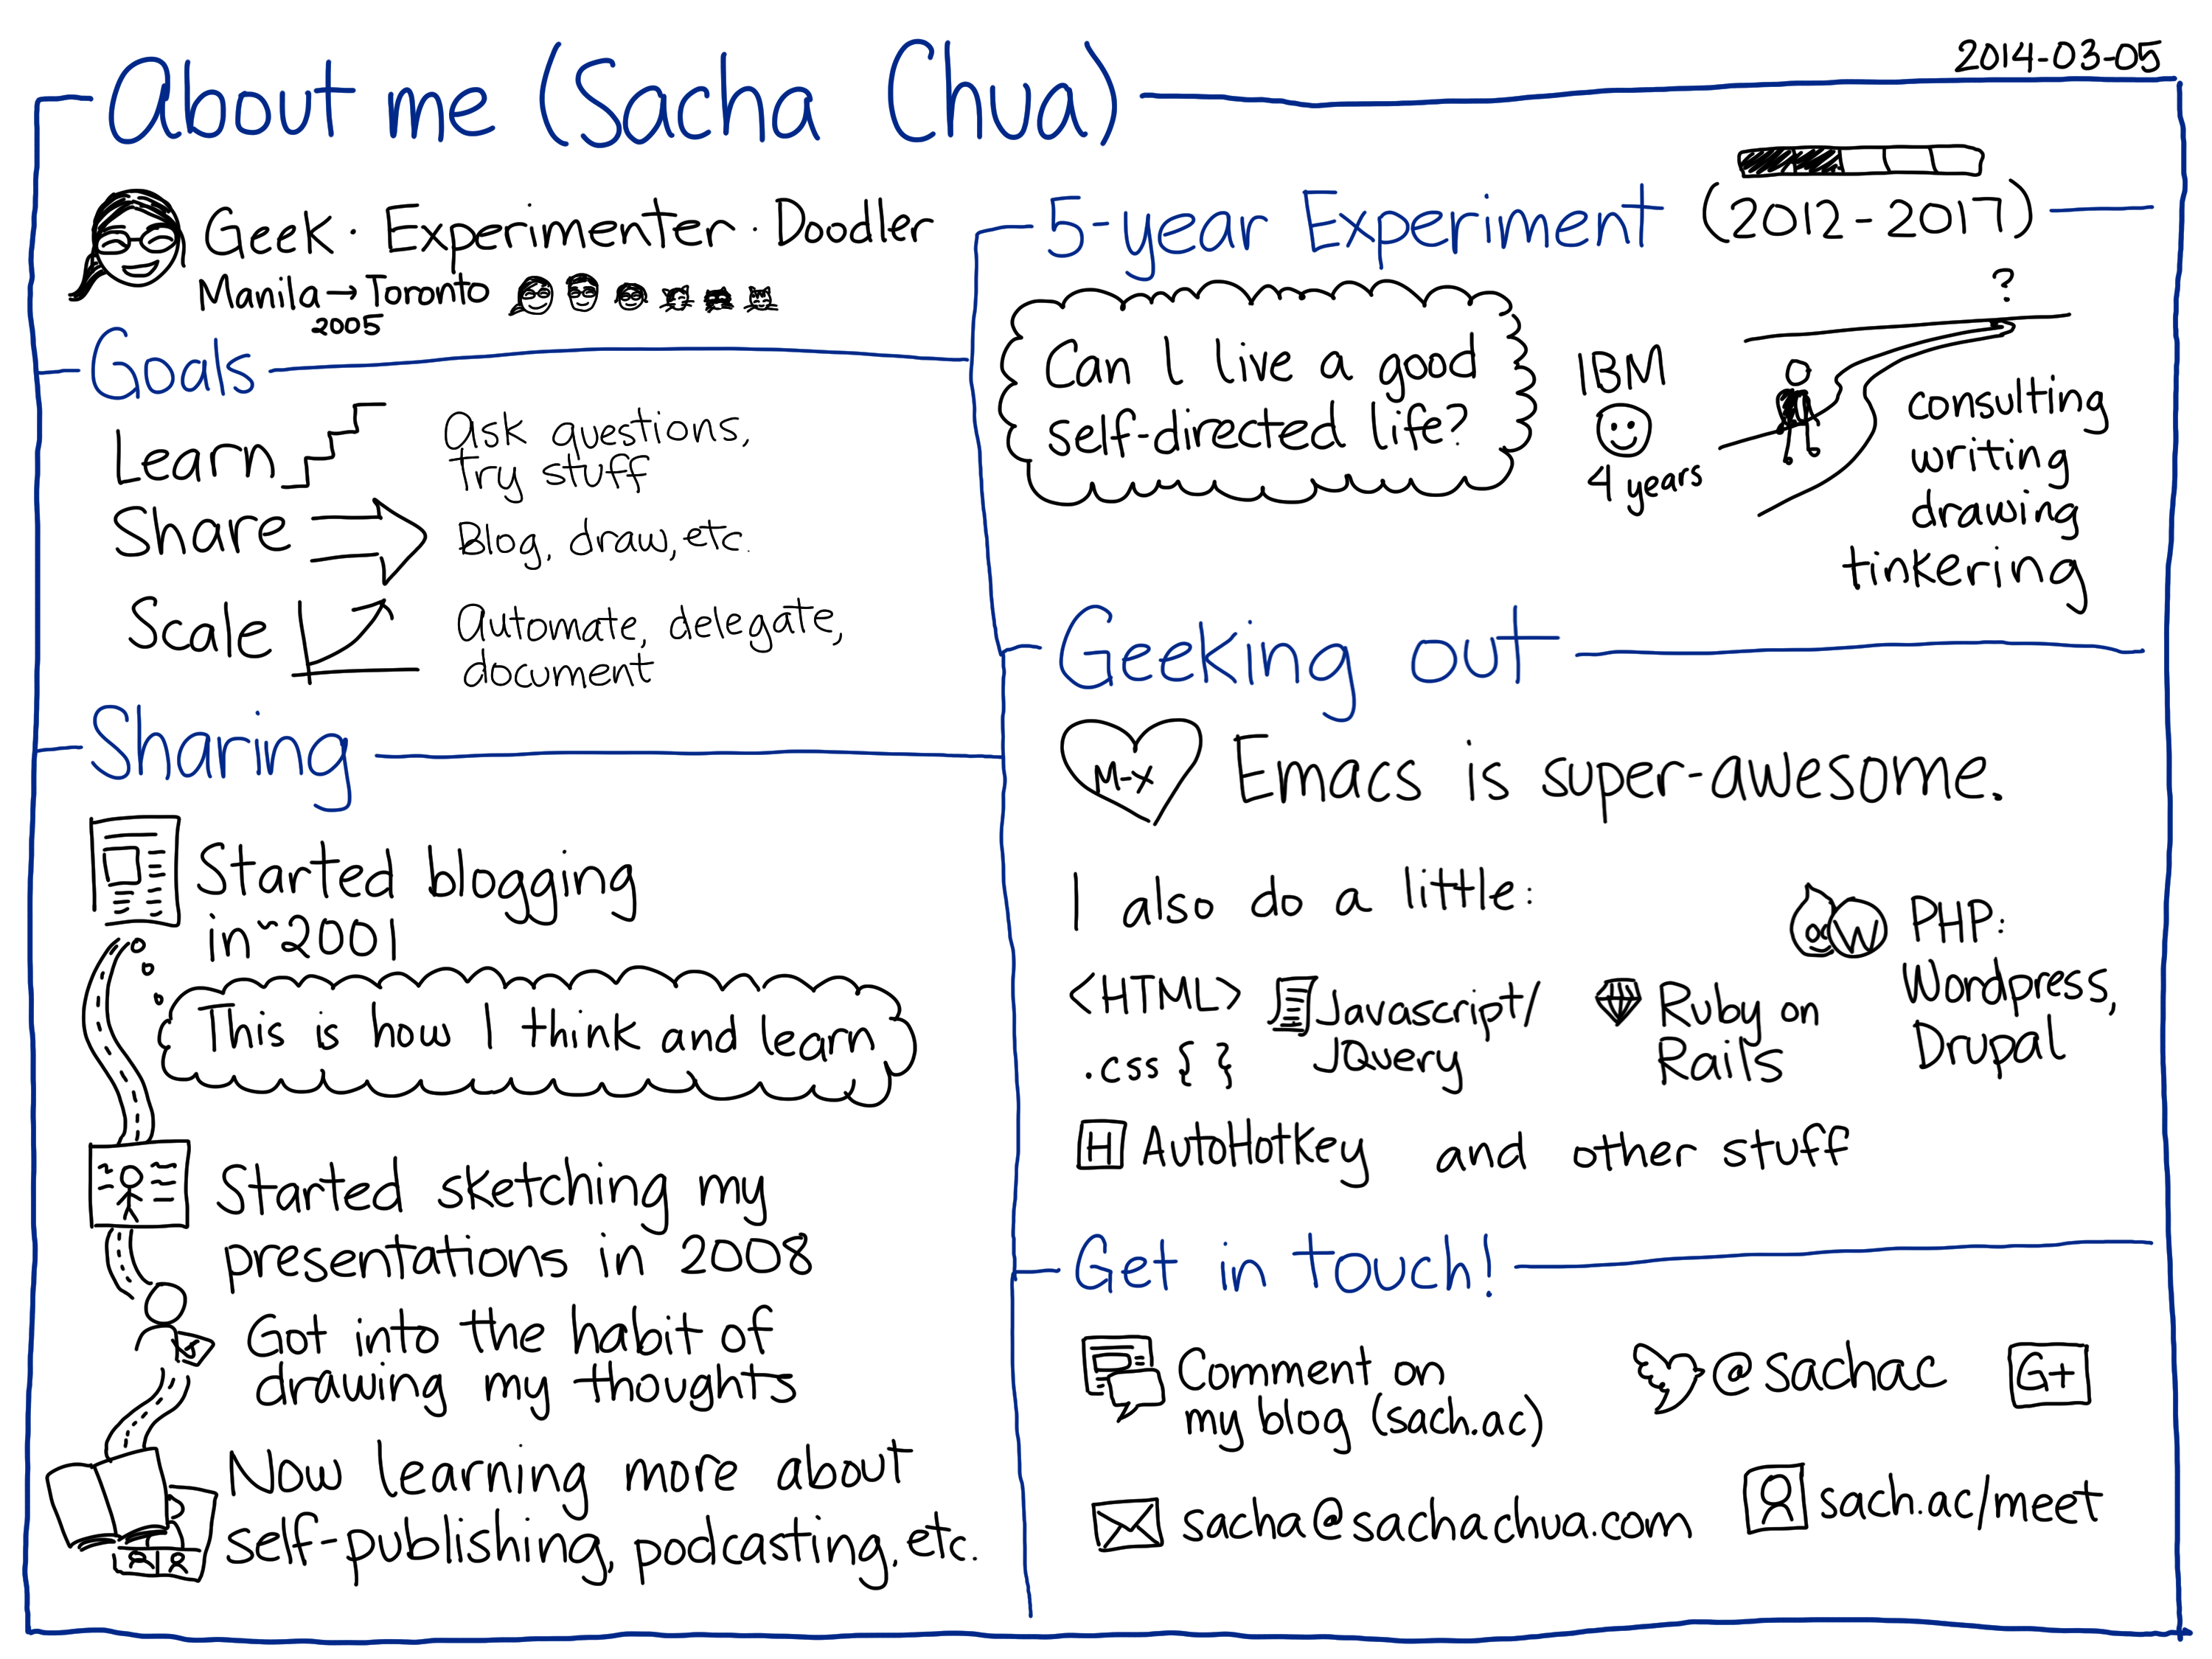 2014-03-05
About me (Sacha Chua)
Geek · Experimenter · Doodler
Manila → Toronto
2005
Goals
Learn
Ask questions,
try stuff
Share
Blog, draw, etc.
Scale
Automate, delegate,
document
Sharing
Started blogging
in ~2001
This is how I think and learn
Started sketching my
presentations in 2008
Got into the habit of
drawing my thoughts
Now learning more about
self-publishing, podcasting, etc.
5-year Experiment (2012-2017)
Can I live a good
self-directed life?
IBM
4 years
?
consulting
writing
drawing
tinkering
Geeking out
M-x
Emacs is super-awesome.
I also do a little:
<HTML>
.css { }
Javascript/
JQuery
Ruby on
Rails
W
PHP:
Wordpress,
Drupal
H
AutoHotKey and other stuff
Get in touch!
Comment on
my blog (sach.ac)
@sachac
G+
sacha@sachachua.com
sach.ac/meet